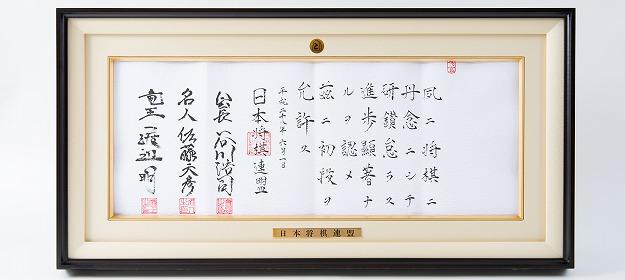 と
夙ニ将棋ニ
丹念ニシテ
研鑽怠ラス
進歩顯著ナ
ルヲ認メ
茲ニ初段ヲ
允許ス
平成二十八年六月一日
日本将棋連盟
会長 谷川浩司
名人 佐藤天彦
竜王 渡辺明
日本将棋連盟